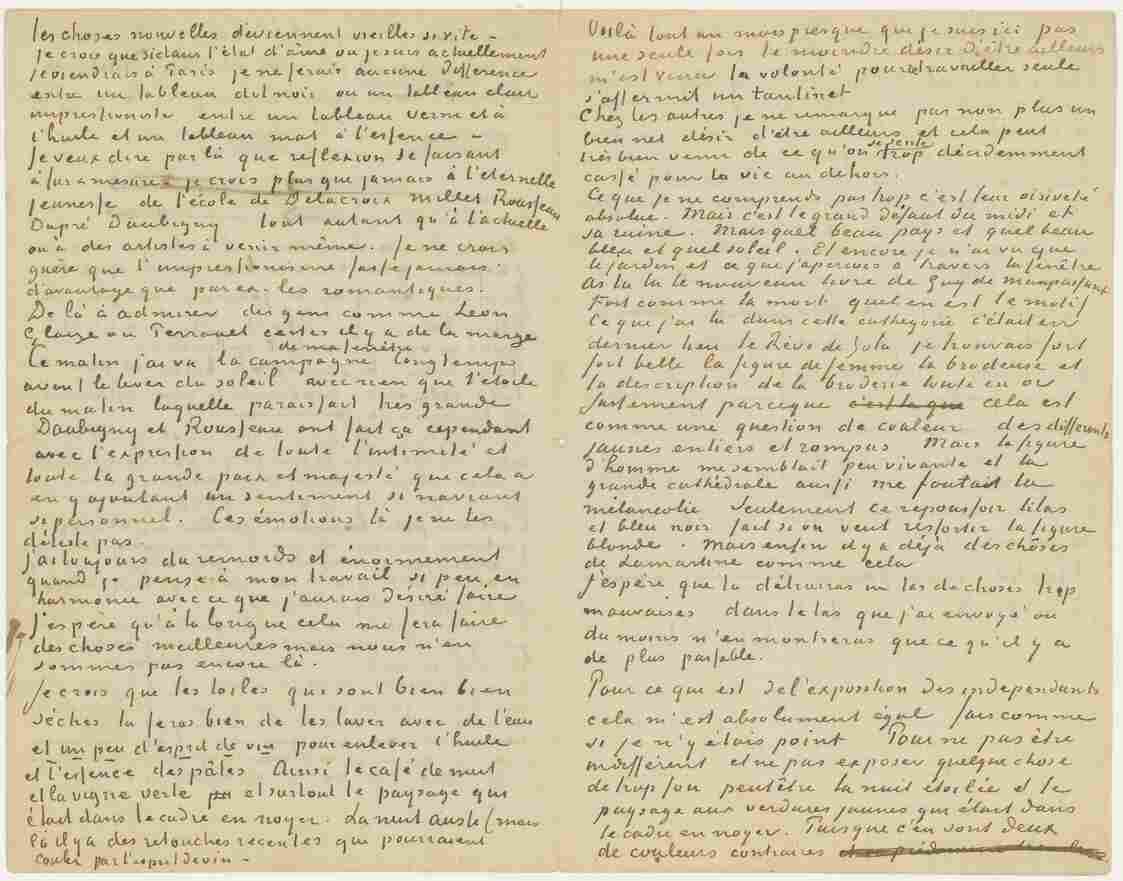 les choses nouvelles deviennent vieilles si vite –
je crois que si dans l'état d'âme ou je suis actuellement
je viendrais à Paris je ne ferais aucune difference
entre un tableau dit noir ou un tableau clair
impressioniste entre un tableau verni et à
l'huile et un tableau mat à l'essence –
Je veux dire par là que reflexion se faisant
à fur à mesure je crois plus que jamais à l'éternelle
jeunesse de l'école de Delacroix Millet Rousseau
Dupré Daubigny tout autant qu'à l'actuelle
ou à des artistes à venir même. Je ne crois
guère que l'impressionisme fasse jamais
d'avantage que par ex. les romantiques.
De là à admirer des gens comme Léon
Glaize ou Perrouet certes il y a de la marge
de ma fenêtre
Ce matin j'ai vu la campagne longtemps
avant le lever du soleil avec rien que l'étoile
du matin laquelle paraissait très grande
Daubigny et Rousseau ont fait ça cependant
avec l'expression de toute l'intimité et
toute la grande paix et majesté que cela a
en y ajoutant un sentiment si navrant
si personnel. Ces émotions là je ne les
déteste pas.
J'ai toujours du remords et énormement
quand je pense à mon travail si peu en
harmonie avec ce que j'aurais désiré faire
J'espère qu'à la longue cela me fera faire
des choses meilleures mais nous n'en
sommes pas encore là.
Je crois que les toiles qui sont bien bien
sèches tu feras bien de les laver avec de l'eau
et un peu d'esprit de vin pour enlever l'huile
et l'essence des pâtes Ainsi le café de nuit
et la vigne verte et surtout le paysage qui
était dans le cadre en noyer. La nuit aussi (mais
là il y a des retouches recentes qui pourraient
couler par l'esprit de vin –
Voilà tout un mois presque que je suis ici pas
une seule fois le moindre désir d'être ailleurs
m'est venu la volonté pour travailler seule
s'affermit un tantinet
Chez les autres je ne remarque pas non plus un
bien net désir d'être ailleurs et cela peut
se sente
très bien venir de ce qu'on trop décidemment
cassé pour la vie au dehors.
Ce que je ne comprends pas trop c'est leur oisiveté
absolue. Mais c'est le grand défaut du midi et
sa ruine. Mais quel beau pays et quel beau
bleu et quel soleil. Et encore je n'ai vu que
le jardin et ce que j'aperçois à travers la fenêtre
As tu lu le nouveau livre de Guy de Maupassant
Fort comme la mort quel en est le motif
Ce que j'ai lu dans cette cathégorie c'était en
dernier lieu le Rêve de Zola je trouvais fort
fort belle la figure de femme la brodeuse et
la description de la broderie toute en or
Justement parceque c'est la que cela est
comme une question de couleur des differents
jaunes entiers et rompus Mais la figure
d'homme me semblait peu vivante et la
grande cathédrale aussi me foutait la
mélancolie Seulement ce repoussoir lilas
et bleu noir fait si on veut ressortir la figure
blonde. Mais enfin il y a déjà des chôses
de Lamartine comme cela
J'espère que tu détruiras un tas de choses trop
mauvaises dans le tas que j'ai envoyé ou
du moins n'en montreras que ce qu'il y a
de plus passable.
Pour ce que est de l'exposition des independants
cela m'est absolument égal fais comme
si je n'y étais point Pour ne pas être
indifférent et ne pas exposer quelque chose
de trop fou peutêtre la nuit étoilée et le
paysage aux verdures jaunes qui était dans
le cadre en noyer. Puisque c'en sont deux
de couleurs contraires